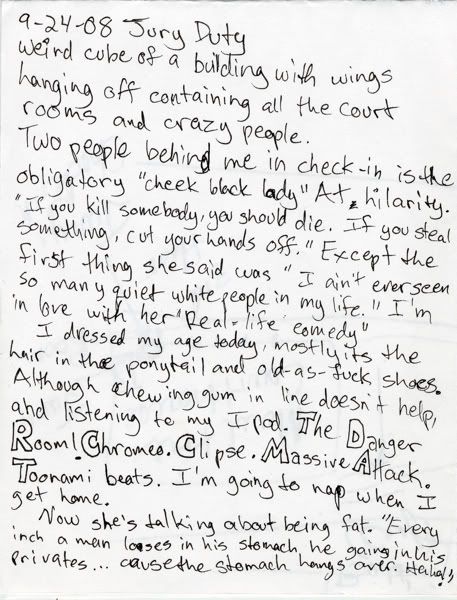 9-24-08 Jury Duty
weird cube of a building with wings
hanging off containing all the court
rooms and crazy people.
Two people behind me in check-in is the
obligatory "cheek black lady" At hilarity.
"If you kill somebody, you should die. If you steal
something, cut your hands off." Except the
first thing she said was "I ain't ever seen
so many quiet white people in my life." I'm
in love with her "Real-life comedy"
I dressed my age today, mostly its the
hair in the ponytail and old-as-fuck shoes.
Although chewing gum in line doesn't help,
and listening to my Ipod. The Danger
Room! Chromeo. Clipse. Massive Attack.
Toonami beats. I'm going to nap when I
get home.
Now she's talking about being fat. "Every
inch a man looses in his stomach he gains in his
privates... cause the stomach hangs over. Hehaha!"